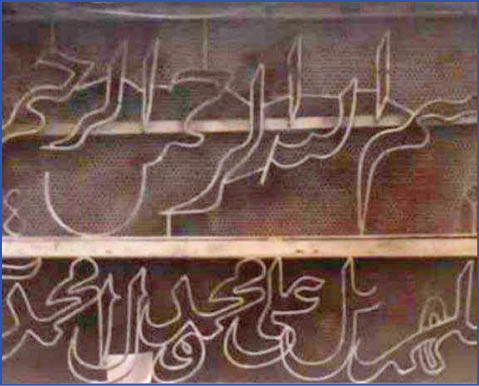 بسم الله الرحمن الرحيم
اللهم صل على محمد وال محمد